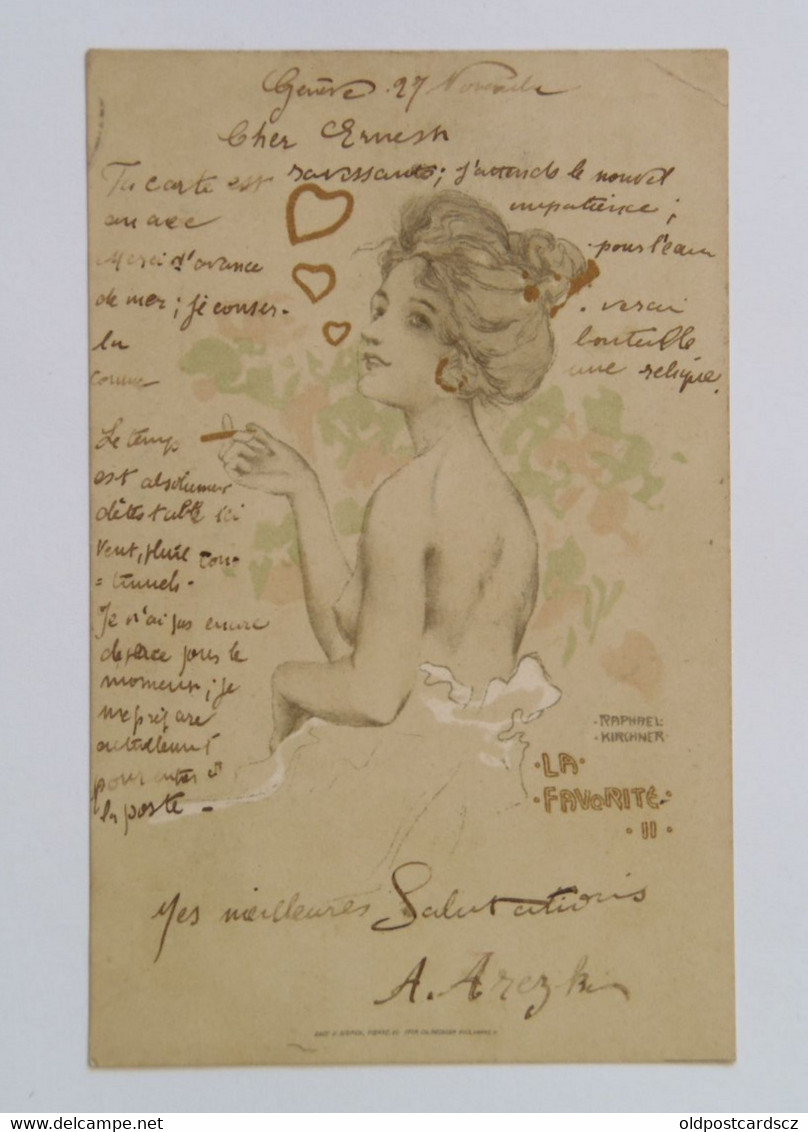 Genève 27 Novembre
Cher Ernest
Ta carte est ravissante; j'attends le nouvel
impatience;
Merci d'avance pour l'eau
de mer; je conser- verai
la bouteille
comme une relique.
Le temps
est absolument
détestable ici
Vent, pluie con-
= tinuels -
Je n'ai pas encore
de place pour le
moment; je
me prépare
actuellement
pour entrer à
la poste -
·RAPHAEL·
·KIRCHNER·
·LA·
·FAVORITE·
·II·
Mes meilleures Salutations
A. Arezki
www.delcampe.net
oldpostcardscz